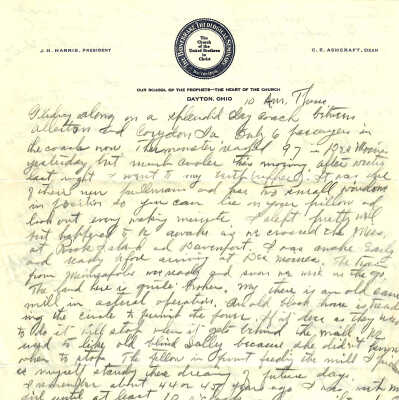 THE BONEBRAKE THEOLOGICAL SEMINARY
The Church
of the
United Brethren
in
Christ
J. H. HARRIS, PRESIDENT
C. E. ASHCRAFT, DEAN
OUR SCHOOL OF THE PROPHETS—THE HEART OF THE CHURCH
DAYTON, OHIO
10 Am. Thurs.
Gliding along on a splendid day coach between
Allerton and Corydon Ia. Only 6 passengers in
the coach now. Thermometer reached 97 in
yesterday, but much cooler this morning after
last night. I went to my at. It was one
of their new pullmans and has two small windows
in so you can lie on your pillow and
look out every waking minute. I slept pretty well
but happened to be awake as we crossed the Miss.
at Rock Island and Davenport. I was awake early
and ready before arriving at Des Moines. The train
from Minneapolis was ready and soon we were on the go.
The land here is quite broken. My there is an old cane
mill in actual operation. An old black horse is
ing the circle to furnish the power.
to do it "he'll stop when it gets behind the mill." We
used to like old blind Dolly because she didn't know
when to stop. The fellow in front feeding the mill I
is myself standing there dreaming of future days.
I remember about 44 or 45 years ago I was
until at least